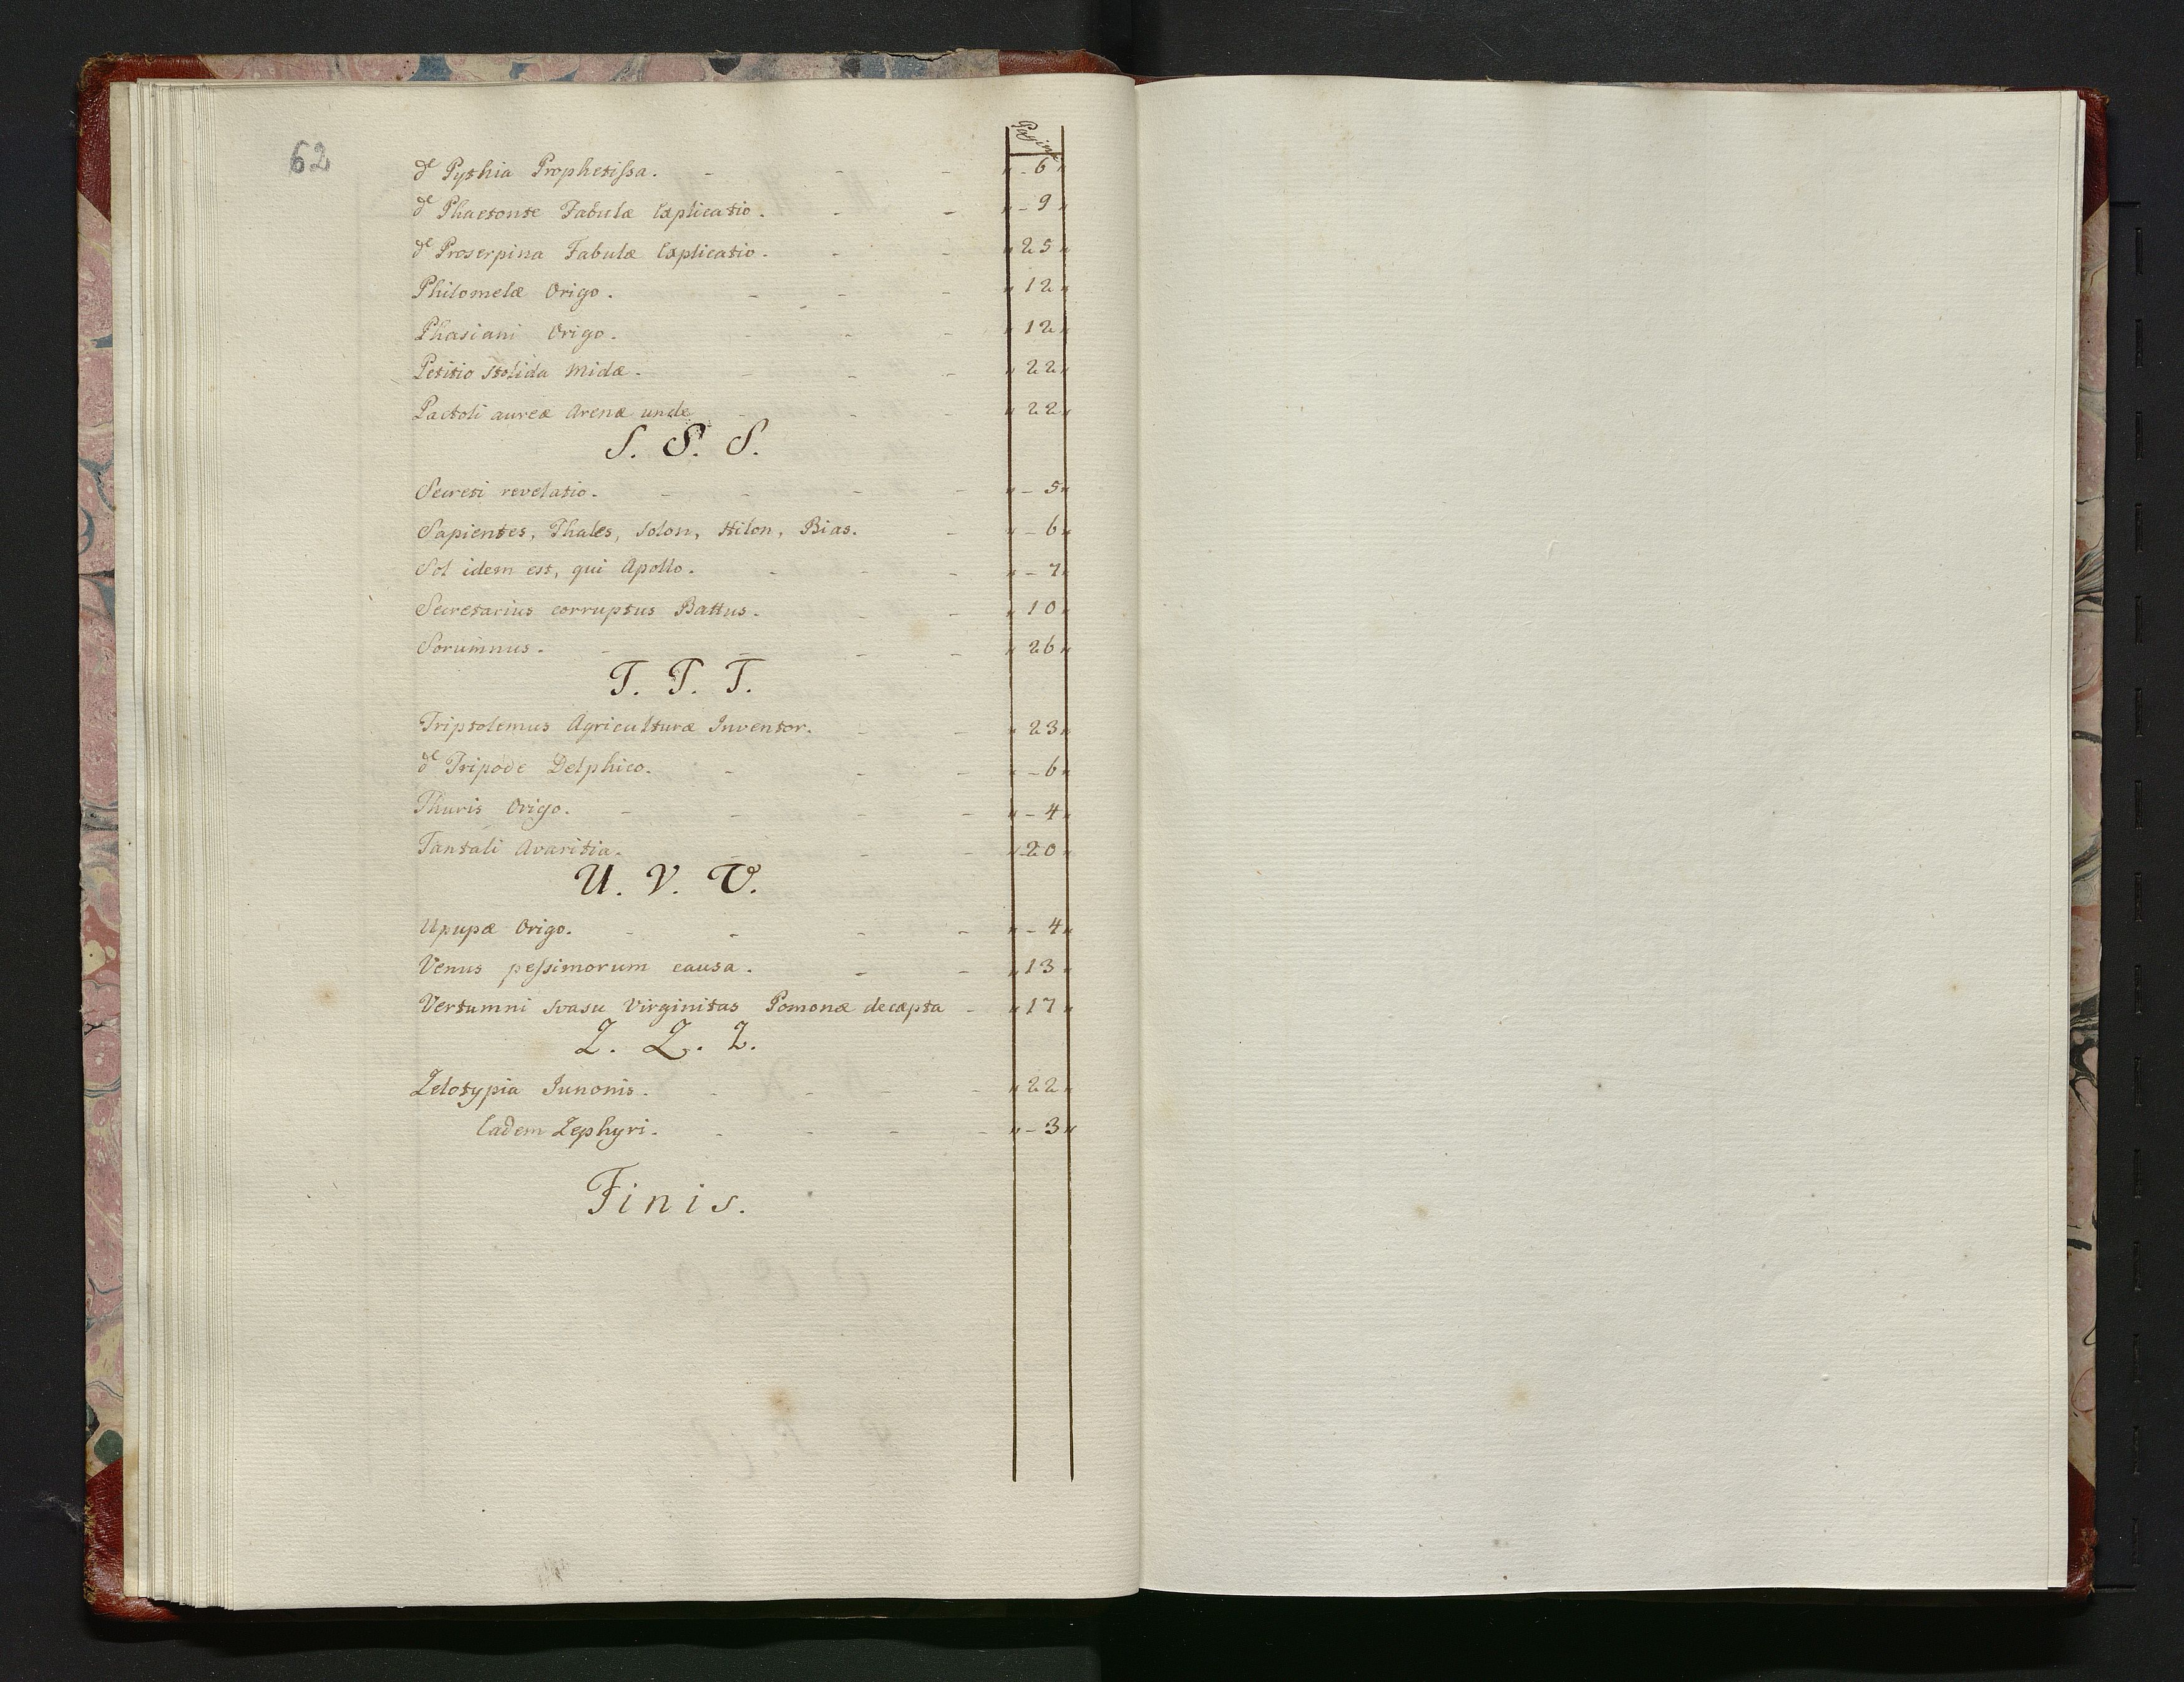 62
Pagina
de Pythia Prophetissa. - - - " - 6 "
de Phaetonte Fabulæ Explicatio. - - " - 9 "
de Proserpina Fabulæ Explicatio. - - " 25 "
Philomelæ Origo. - - - " 12 "
Phasiani Origo. - - - " 12 "
Petitio stolida Midæ. - - - " 22 "
Pactoli aureæ Arenæ unde - - - " 22 "
S. S. S.
Secreti revelatio. - - - - " - 5 "
Sapientes, Thales, Solon, Hilon, Bias. - " - 6 "
Sol idem est, qui Apollo. - - - " - 7 "
Secretarius corruptus Battus. - - " 10 "
Sorumnus. - - - - " 26 "
T. T. T.
Triptolemus Agriculturæ Inventor. - - " 23 "
de Tripode Delphico. - - - " - 6 "
Thuris Origo. - - - - " - 4 "
Tantali Avaritia. - - - " 20 "
U. V. V.
Upupæ Origo. - - - - " - 4 "
Venus pessimorum causa. - - " 13 "
Vertumni svasu Virginitas Pomonæ decæpta - " 17 "
Z. Z. Z.
Zelotypia Junonis. - - - - " 22 "
Eadem Zephyri. - - - - " - 3 "
Finis.